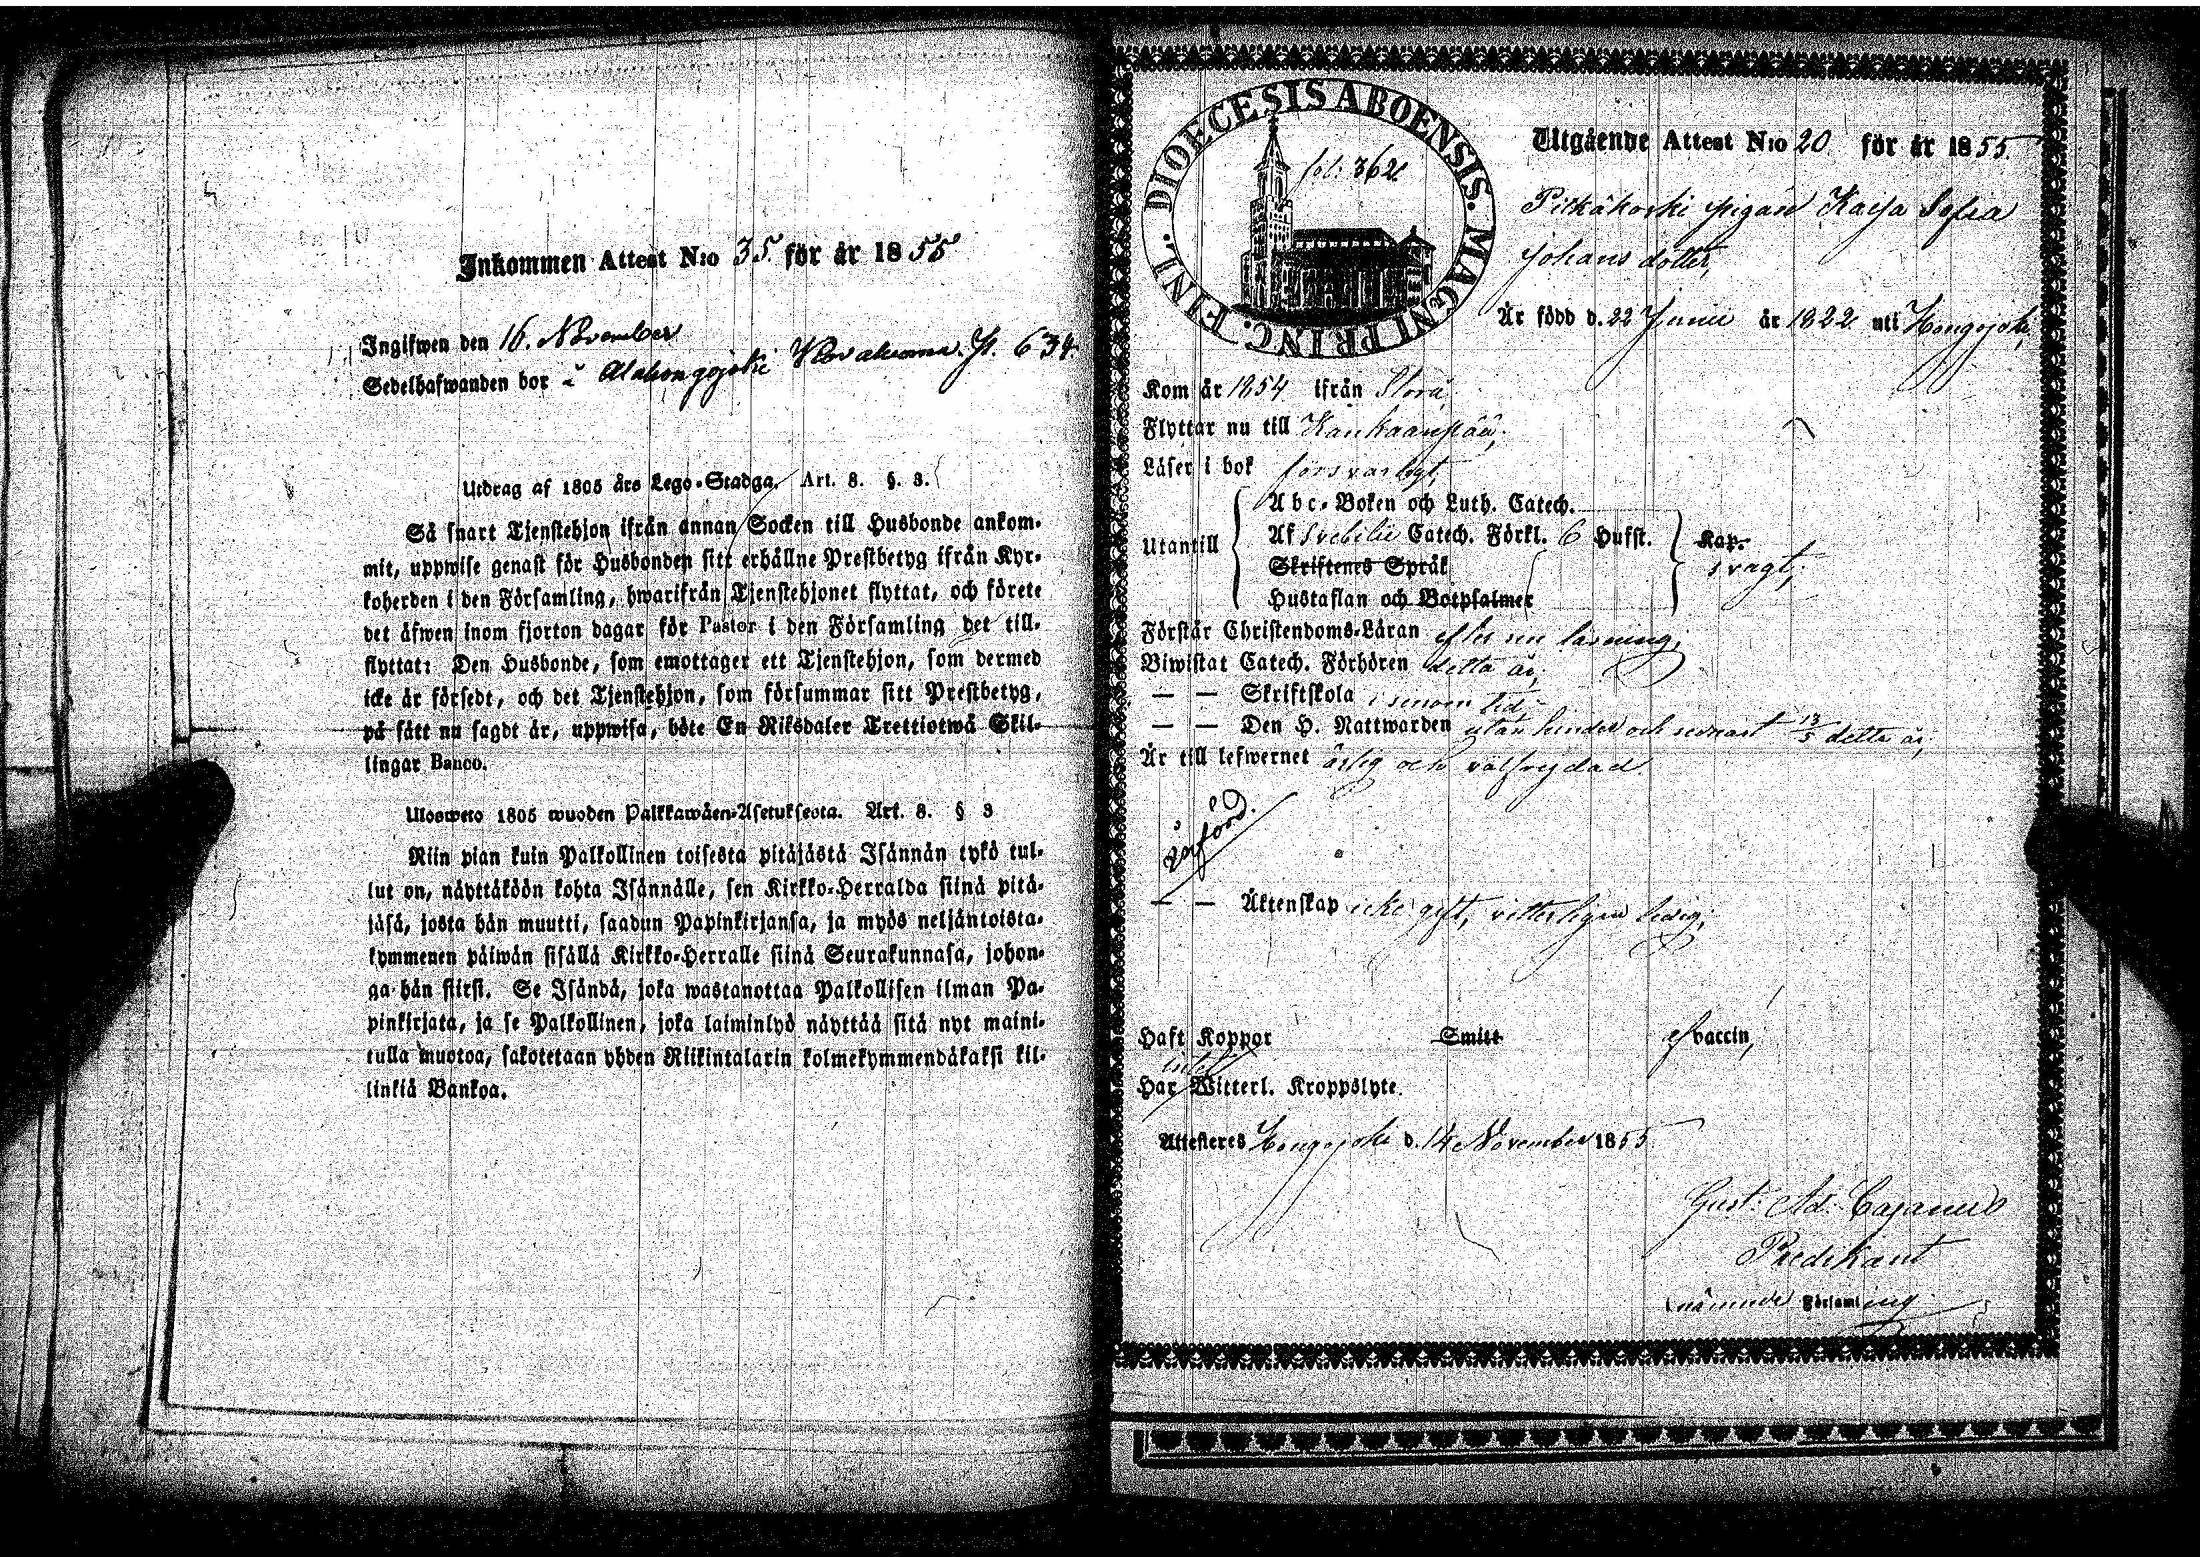 Inkommen Attest N:o 35. för år 1855
Ingifwen den 16. November
Sedelhafwanden bor i Alahongojoki P. 634.
Utdrag af 1805 års Lego-Stadga. Art. 8. §. 3.
Så snart Tjenstehjon ifrån annan Socken till Husbonde ankom-
mit, uppwise genast för Husbonden sitt erhållne Prestbetyg ifrån Kyr-
koherden i den Församling, hwarifrån Tjenstehjonet flyttat, och förete
det äfwen inom fjorton dagar för Pastor i den Församling det till-
flyttat: Den Husbonde, som emottager ett Tjenstehjon, som dermed
icke är försedt, och det Tjenstehjon, som försummar sitt Prestbetyg,
på sätt nu sagdt är, uppwisa, böte En Riksdaler Trettiotwå Skil-
lingar Banco.
Ulosweto 1805 wuoden Palkkawäen-Asetuksesta. Art. 8. § 3
Niin pian kuin Palkollinen toisesta pitäjästä Isännän tykö tul-
lut on, näyttäköön kohta Isännälle, sen Kirkko-Herralda siinä pitä-
jäsä, josta hän muutti, saadun Papinkirjansa, ja myös neljäntoista-
kymmenen päiwän sisällä Kirkko-Herralle siinä Seurakunnasa, johon-
ga hän siirsi. Se Isändä, joka wastanottaa Palkollisen ilman Pa-
pinkirjata, ja se Palkollinen, joka laiminlyö näyttää sitä nyt maini-
tulla muotoa, sakotetaan yhden Riikintalarin kolmekymmendäkaksi kil-
linkiä Bankoa.
DIOECESIS ABOENSIS. MAGNI PRINC. FINL.
fol: 362
Utgående Attest N:o 20 för år 1855.
Pitkäkoski pigan Kaisa Sofia
Johans dotter,
Är född d. 22 Junii år 1822 uti Hongojoki,
Kom år 1854 ifrån Storå,
Flyttar nu till Kankaanpää,
Läser i bok försvarligt,
Abc-Boken och Luth. Catech.
Utantill Af Svebilii Catech. Förkl. 6 Hufst. Kap.
Skriftenes Språk svagt,
Hustaflan och Botpsalmer
Förstår Christendoms-Läran efter sin läsning,
Biwistat Catech. Förhören detta år,
— — Skriftskola i sinom tid,
— — Den H. Nattwarden utan hinder och senast 13/5 detta år,
Är till lefwernet ärlig och välfrejdad.
Införd.
— — Äktenskap icke gift, vitterligen ledig,
Haft Koppor Smitt af vaccin,
intet
Har Witterl. Kroppslyte.
Attesteres Hongojoki d. 14 November 1855
Gust. Ad. Cajanus
Predikant
i nämnde Församling